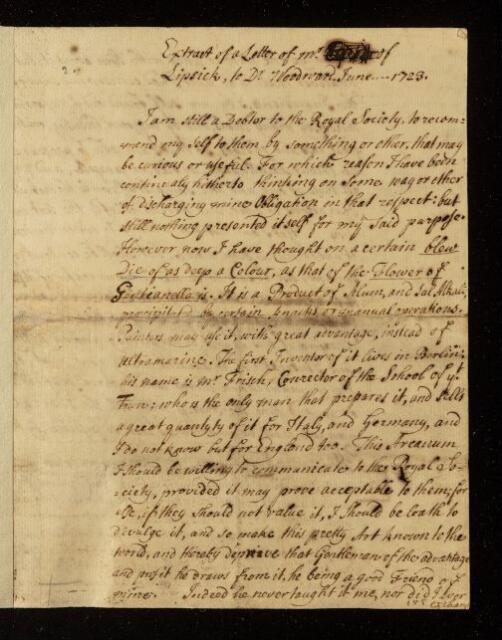 Extract of a Letter of Mr. of
Lipsick, to Dr Woodward June --- 1723.
I am still a Debtor to the Royal Society, to recom=
mend my self to them by something or other, that may
be curious or useful. For which reason I have been
continualy hitherto thinking on Some way or other
of discharging mine Obligation in that respect: but
still nothing presented it self for my said purpose.
However now I have thought on a certain blew
Die of as deep a Colour, as that of the Flower of
Gentianella is. It is a Product of Alum, and Sal Alkali,
precipitated by certain knacks or manual operations.
Painters may use it, with great advantage, instead of
Ultramarine. The first Inventor of it lives in Berlin;
his name is Mr. Frisch, Conrector of the School of yt
Town: who is the only man that prepares it, and Sells
a great quantyty of it for Italy, and Germany, and
I do not know but for England too. This Arcanum
I should be willing to communicate to the Royal So=
ciety, provided it may prove acceptable to them; for
if they should not value it, I should be loath to
divulge it, and so make this pretty Art known to the
world, and thereby deprieve that Gentleman of the advantage
and profit he draws from it, he being a good Friend of
mine. Indeed he never taught it me, nor did I ever